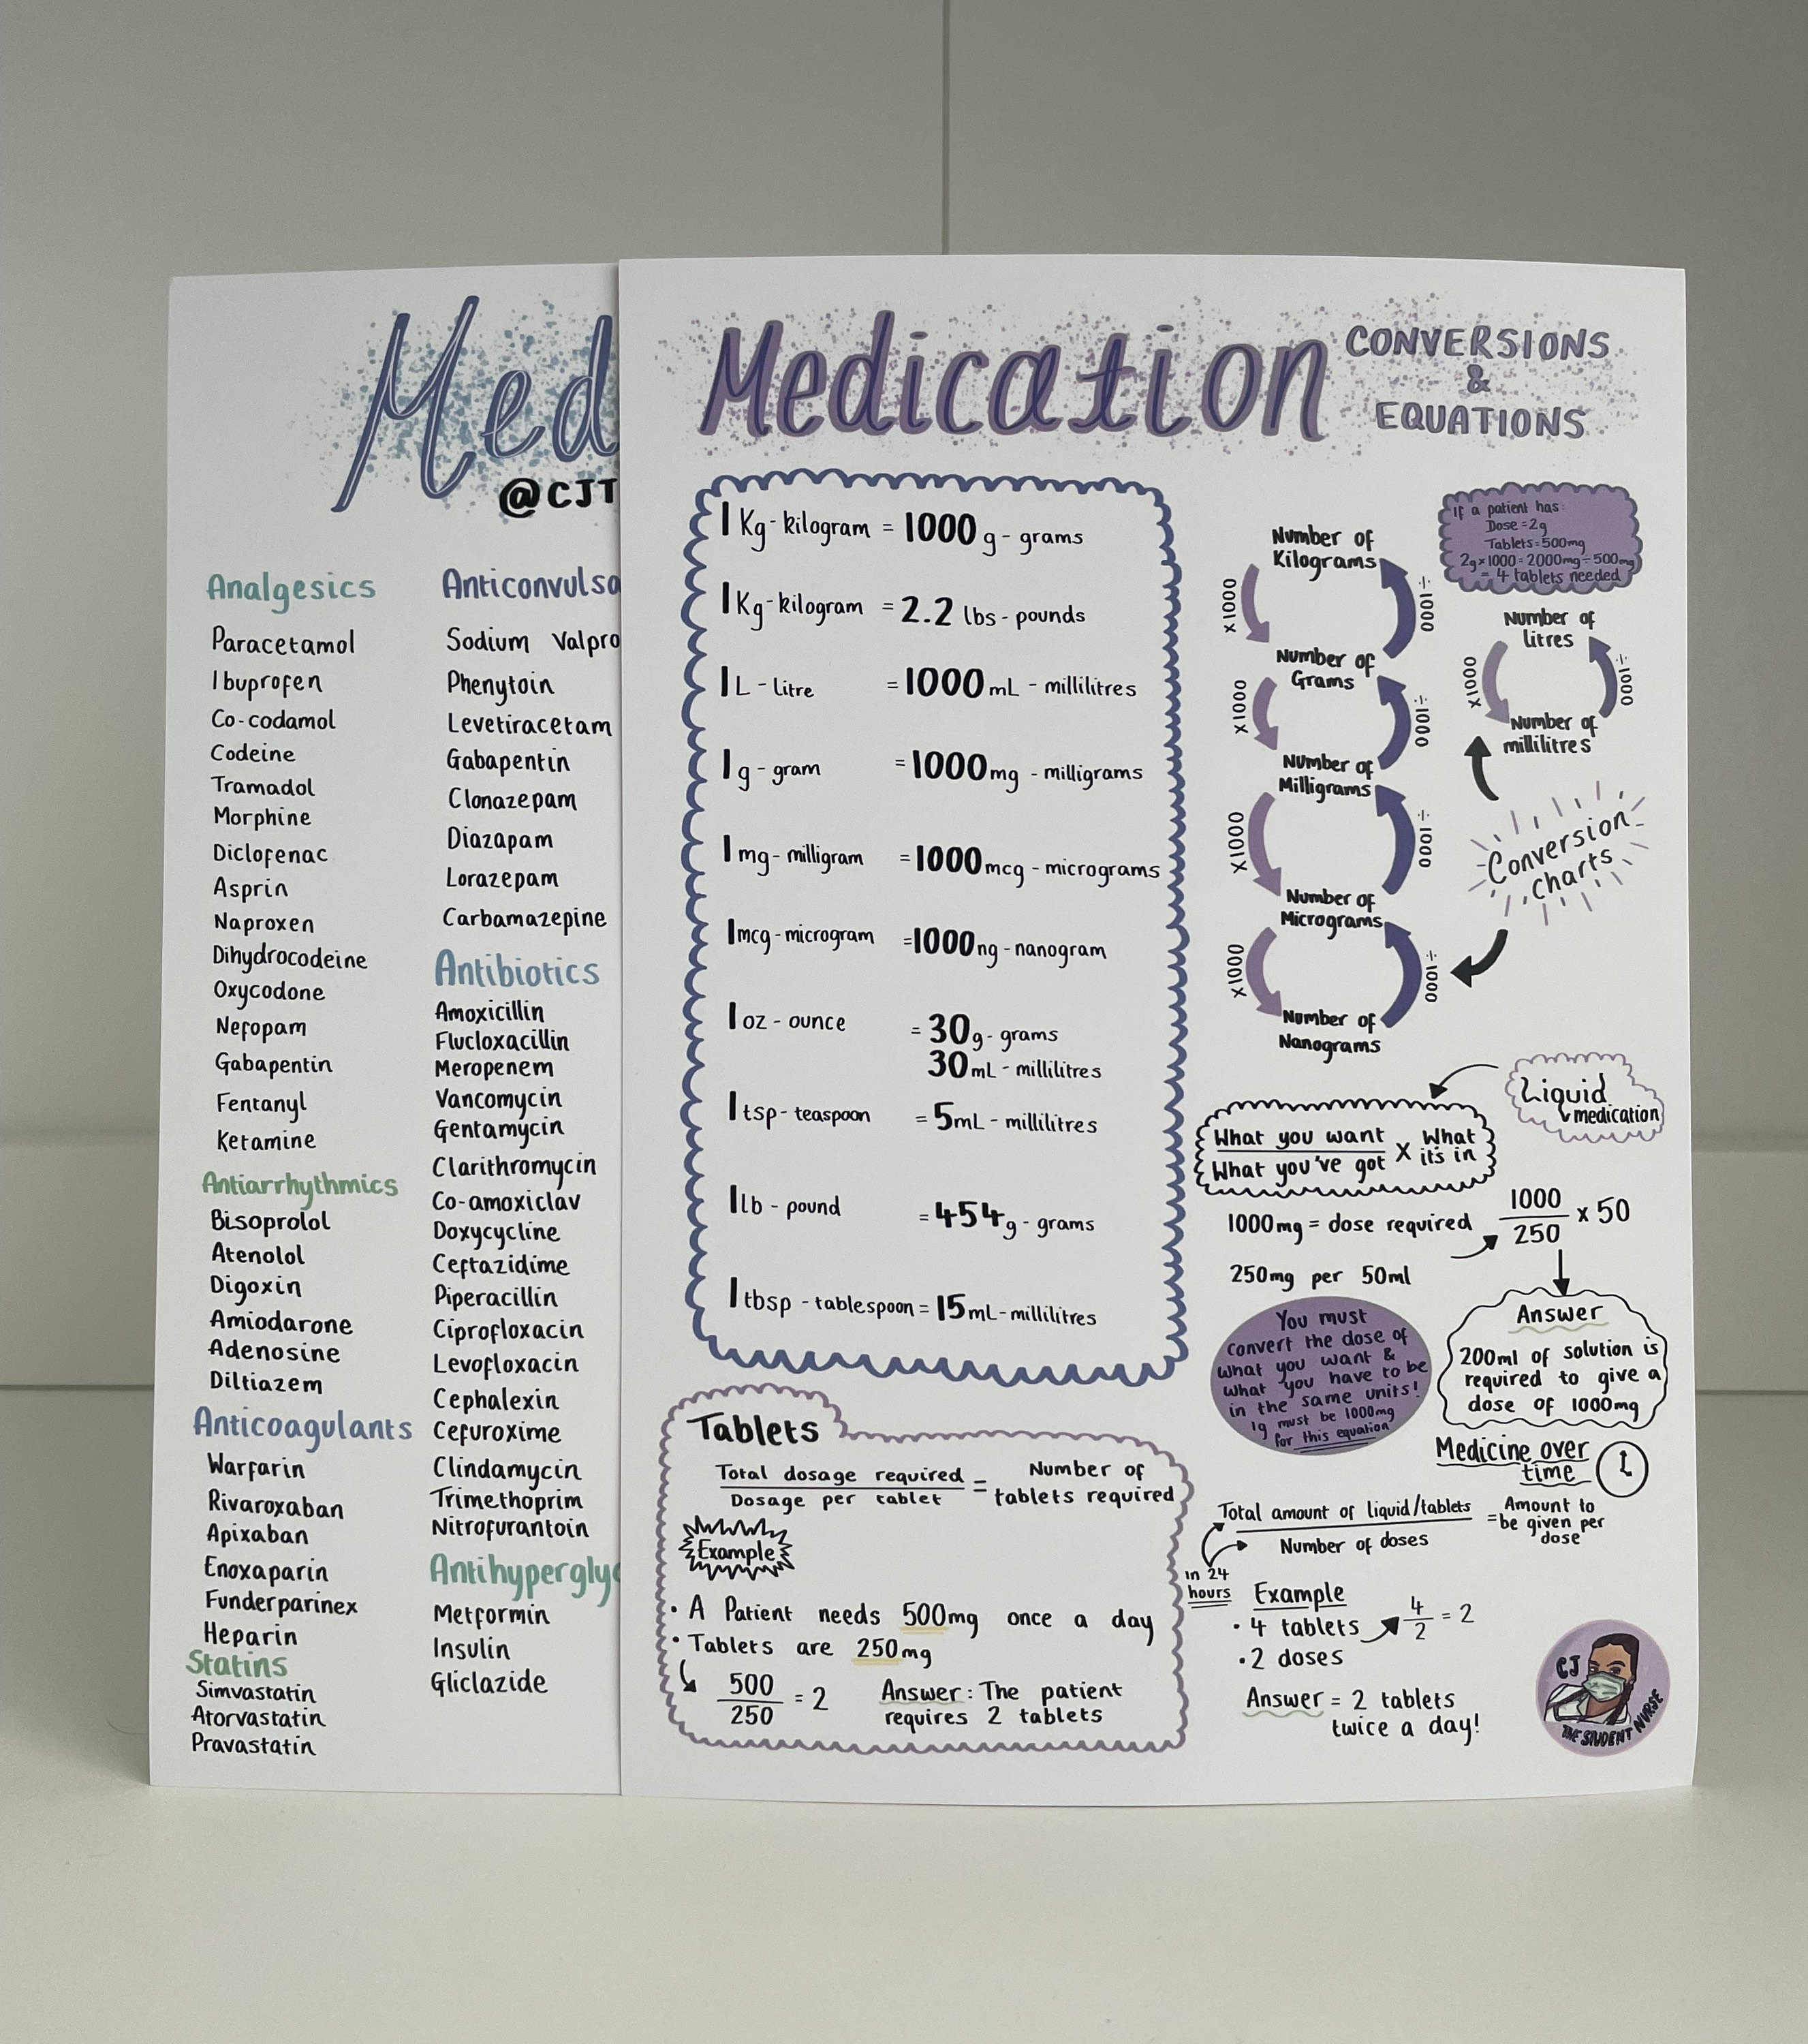 Med
@CJT
Analgesics
Paracetamol
Ibuprofen
Co-codamol
Codeine
Tramadol
Morphine
Diclofenac
Asprin
Naproxen
Dihydrocodeine
Oxycodone
Nefopam
Gabapentin
Fentanyl
Ketamine
Antiarrhythmics
Bisoprolol
Atenolol
Digoxin
Amiodarone
Adenosine
Diltiazem
Anticoagulants
Warfarin
Rivaroxaban
Apixaban
Enoxaparin
Funderparinex
Heparin
Statins
Simvastatin
Atorvastatin
Pravastatin
Anticonvulsa
Sodium Valpro
Phenytoin
Levetiracetam
Gabapentin
Clonazepam
Diazapam
Lorazepam
Carbamazepine
Antibiotics
Amoxicillin
Flucloxacillin
Meropenem
Vancomycin
Gentamycin
Clarithromycin
Co-amoxiclav
Doxycycline
Ceftazidime
Piperacillin
Ciprofloxacin
Levofloxacin
Cephalexin
Cefuroxime
Clindamycin
Trimethoprim
Nitrofurantoin
Antihyperglyc
Metformin
Insulin
Gliclazide
Medication
CONVERSIONS
&
EQUATIONS
1 Kg - kilogram = 1000 g - grams
1 Kg - kilogram = 2.2 lbs - pounds
1 L - litre = 1000 mL - millilitres
1 g - gram = 1000 mg - milligrams
1 mg - milligram = 1000 mcg - micrograms
1 mcg - microgram = 1000 ng - nanogram
1 oz - ounce = 30 g - grams
30 mL - millilitres
1 tsp - teaspoon = 5 mL - millilitres
1 lb - pound = 454 g - grams
1 tbsp - tablespoon = 15 mL - millilitres
Tablets
Total dosage required
Dosage per tablet
=
Number of
tablets required
Example
• A Patient needs 500mg once a day
• Tablets are 250mg
500
250
= 2
Answer: The patient
requires 2 tablets
Number of
Kilograms
x1000
÷1000
Number of
Grams
x1000
÷1000
Number of
Milligrams
x1000
÷1000
Number of
Micrograms
x1000
÷1000
Number of
Nanograms
If a patient has:
Dose = 2g
Tablets = 500mg
2g x 1000 = 2000mg ÷ 500mg
= 4 tablets needed
Number of
litres
x1000
÷1000
Number of
millilitres
Conversion
charts
Liquid
medication
What you want
What you've got
x
What
it's in
1000mg = dose required
250mg per 50ml
1000
250
x 50
You must
convert the dose of
what you want &
what you have to be
in the same units!
1g must be 1000mg
for this equation
Answer
200ml of solution is
required to give a
dose of 1000mg
Medicine over
time
Total amount of liquid/tablets
Number of doses
= Amount to
be given per
dose
in 24
hours
Example
• 4 tablets
4
2
= 2
• 2 doses
Answer = 2 tablets
twice a day!
CJ
THE STUDENT NURSE